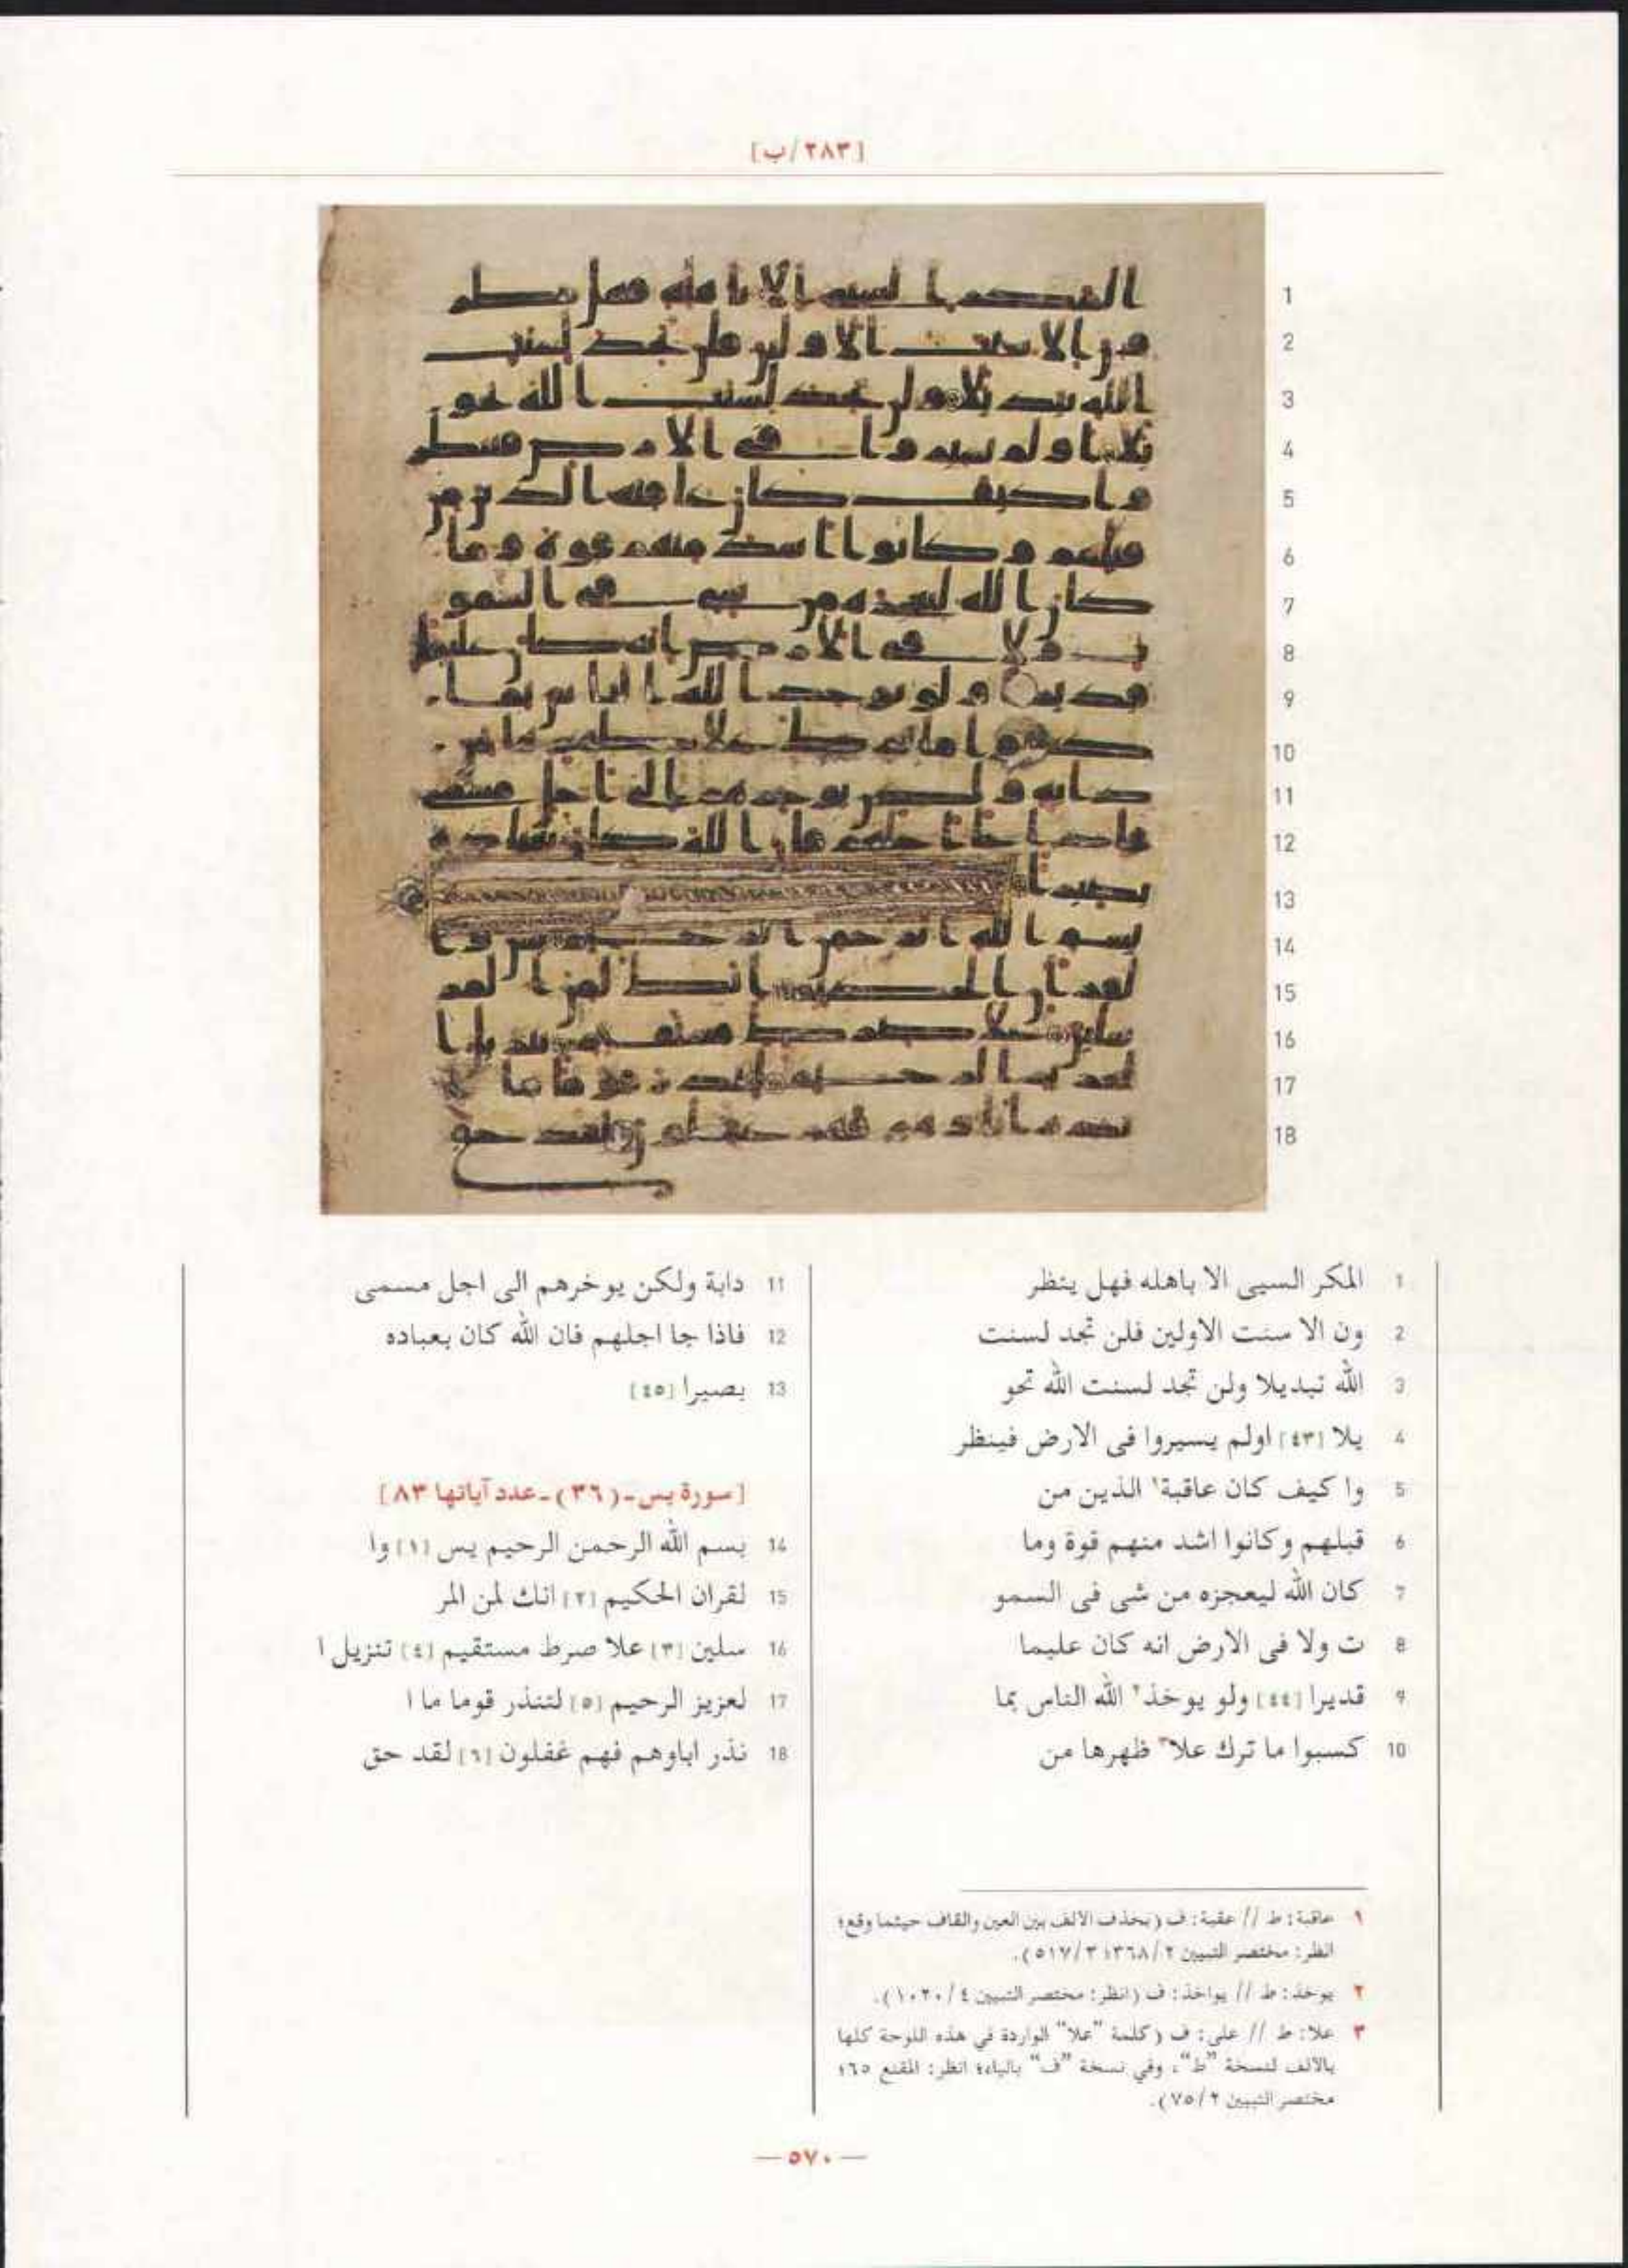 [٢٨٣/ب]
1 المكر السيى الا باهله فهل ينظر
2 ون الا سنت الاولين فلن تجد لسنت
3 الله تبديلا ولن تجد لسنت الله تحو
4 يلا [٤٣] اولم يسيروا فى الارض فينظر
5 وا كيف كان عاقبة١ الذين من
6 قبلهم وكانوا اشد منهم قوة وما
7 كان الله ليعجزه من شى فى السمو
8 ت ولا فى الارض انه كان عليما
9 قديرا [٤٤] ولو يوخذ٢ الله الناس بما
10 كسبوا ما ترك علا٣ ظهرها من
11 دابة ولكن يوخرهم الى اجل مسمى
12 فاذا جا اجلهم فان الله كان بعباده
13 بصيرا [٤٥]
[سورة يس-(٣٦)-عدد آياتها ٨٣]
14 بسم الله الرحمن الرحيم يس [١] وا
15 لقران الحكيم [٢] انك لمن المر
16 سلين [٣] علا صرط مستقيم [٤] تنزيل ا
17 لعزيز الرحيم [٥] لتنذر قوما ما ا
18 نذر اباوهم فهم غفلون [٦] لقد حق
١ عاقبة: ط // عقبة: ف (بحذف الالف بين العين والقاف حيثما وقع؛
انظر: مختصر التبيين ٢/٣٦٨؛ ٣/٥١٧).
٢ يوخذ: ط // يواخذ: ف (انظر: مختصر التبيين ٤/١٠٢٠).
٣ علا: ط // على: ف (كلمة "علا" الواردة في هذه اللوحة كلها
بالالف لنسخة "ط"، وفي نسخة "ف" بالياء؛ انظر: المقنع ٦٥؛
مختصر التبيين ٢/٧٥).
— ٥٧٠ —